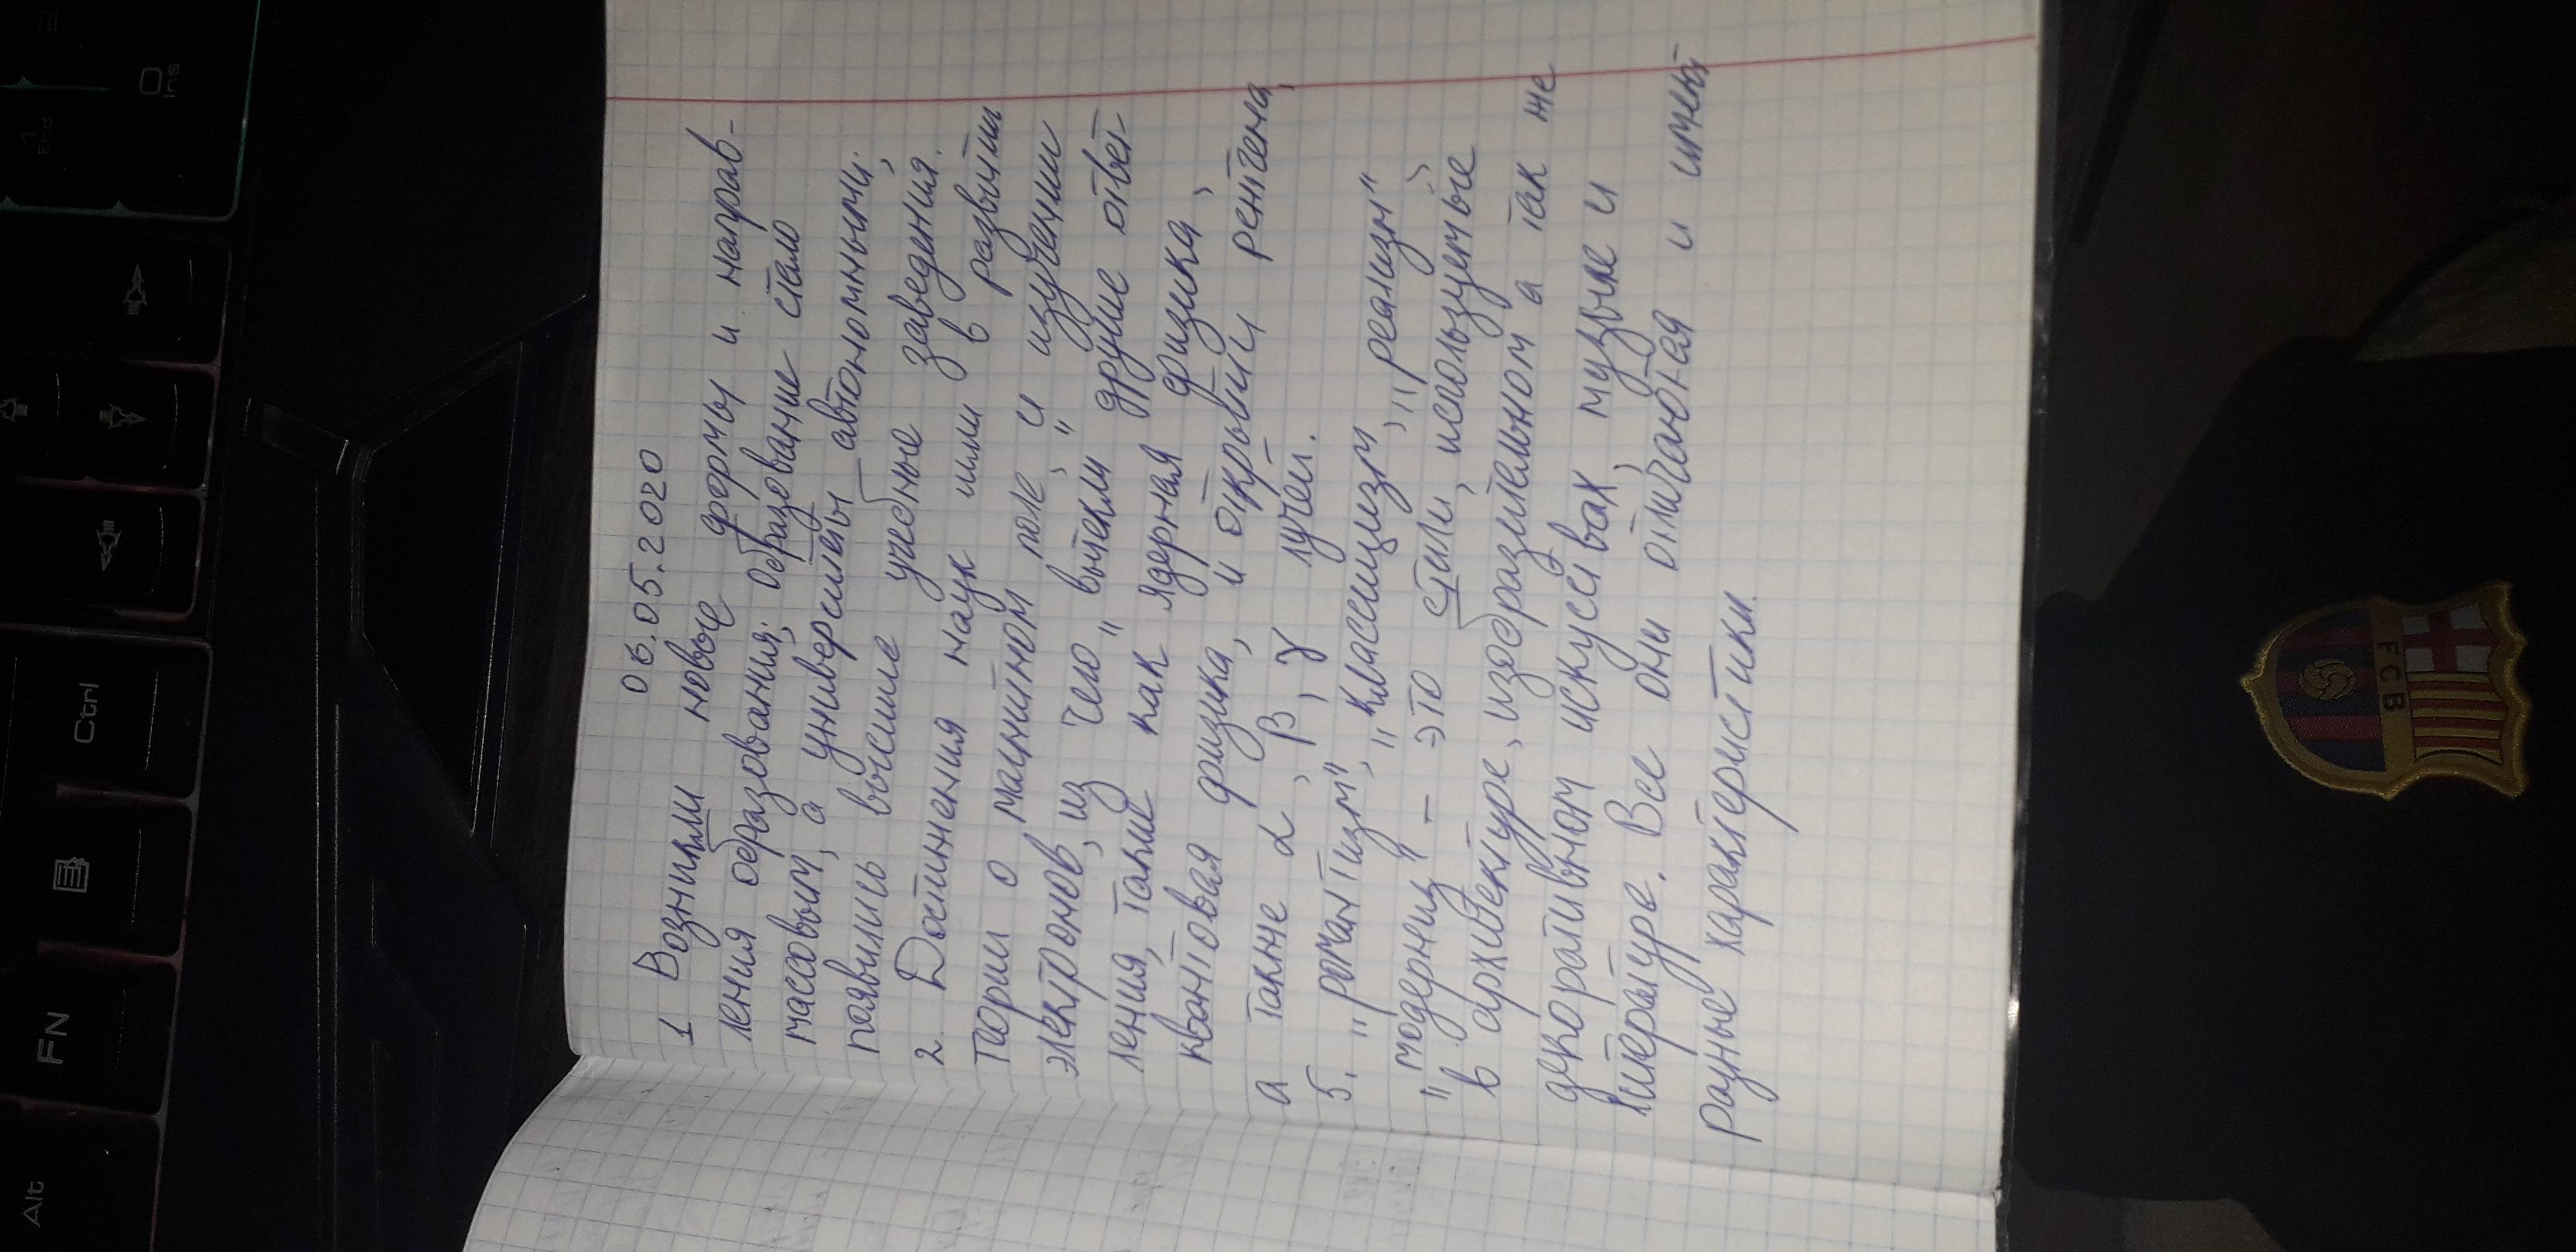 06.05.2020
1 Возникли новые формы и направ-
ления образования; Образование стало
массовым, а университеты автономными;
появились высшие учебные заведения.
2. Достижения наук шли в развитии
теории о магнитном поле, и изучении
электронов, из чего "вытекли" другие ответ-
ления, такие как ядерная физика,
квантовая физика, и открытии рентгена,
а также α, β, γ лучей.
5. "романтизм", "классицизм", "реализм",
"модернизм" – это стили, используемые
в архитектуре, изобразительном а так же
декоративном искусствах, музыке и
литературе. Все они отличаются и имеют
разные характеристики.
Alt
FN
Ctrl
1
End
2
0
Ins
FCB